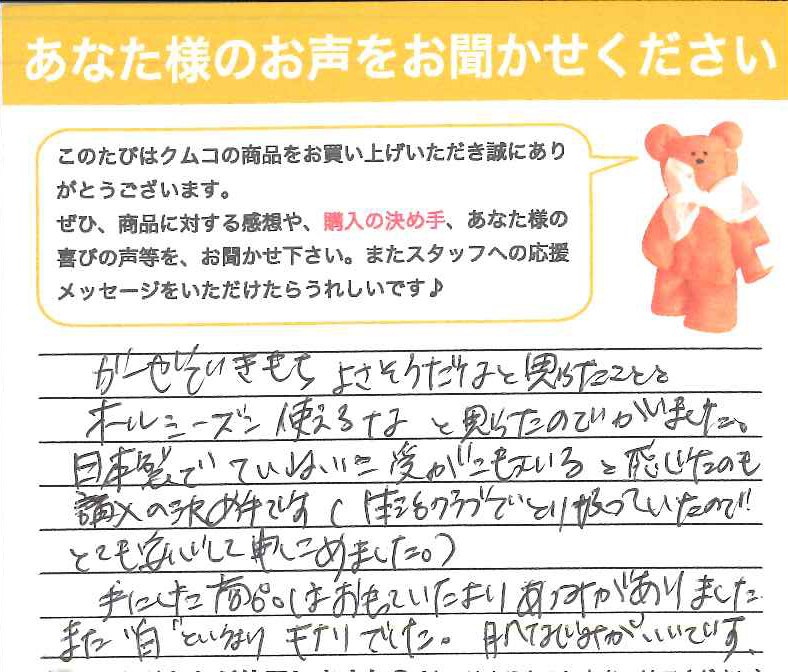 あなた様のお声をお聞かせください
このたびはクムコの商品をお買い上げいただき誠にあり
がとうございます。
ぜひ、商品に対する感想や、購入の決め手、あなた様の
喜びの声等を、お聞かせ下さい。またスタッフへの応援
メッセージをいただけたらうれしいです♪
がーぜできもち よさそうだなと思ったことと
オールシーズン使えるなと思ったのでかいました。
日本製でていねいに愛がこもっていると感じたのも
購入の決め手です(生活クラブでとり扱っていたので!
とても安心して申しこめました。)
手にした商品はおもっていたよりあつみがありました
また"白"というよりキナリでした。肌なじみがいいです。